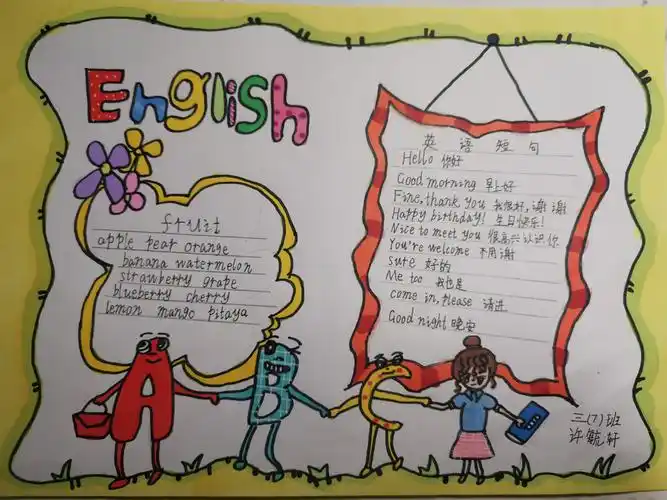 English
fruit
apple pear orange
banana watermelon
strawberry grape
blueberry cherry
lemon mango pitaya
英语短句
Hello 你好
Good morning 早上好
Fine, thank you 我很好,谢谢
Happy birthday! 生日快乐!
Nice to meet you 很高兴认识你
You're welcome 不用谢
sure 好的
Me too 我也是
come in, please 请进
Good night 晚安
A B C
三(7)班
许毓轩